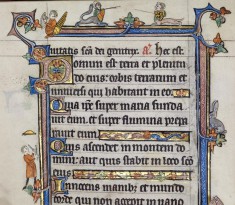 suitatis scā dei genitrix. a. hec est
Domini est terra et plenitu
do eius: orbis terrarum et
universi qui habitant in eo
Quia ipse super maria funda
uit eum: et super flumina prepa
rauit eum
Quis ascendet in montem do
mini: aut quis stabit in loco scō
eius
Innocens manibus et mundo
corde qui non accepit in uano